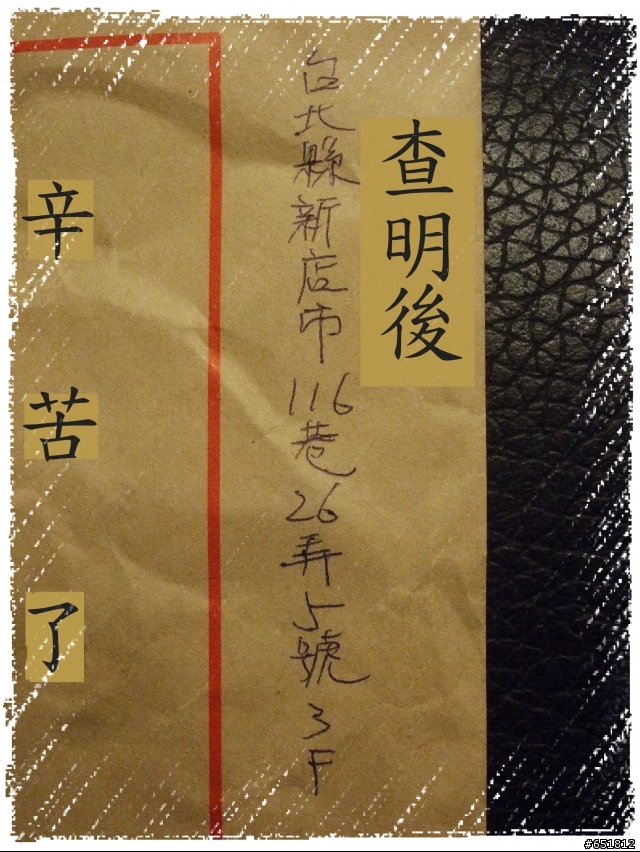 查明後
台北縣新店市116巷26弄5號3F
辛苦了
#651812